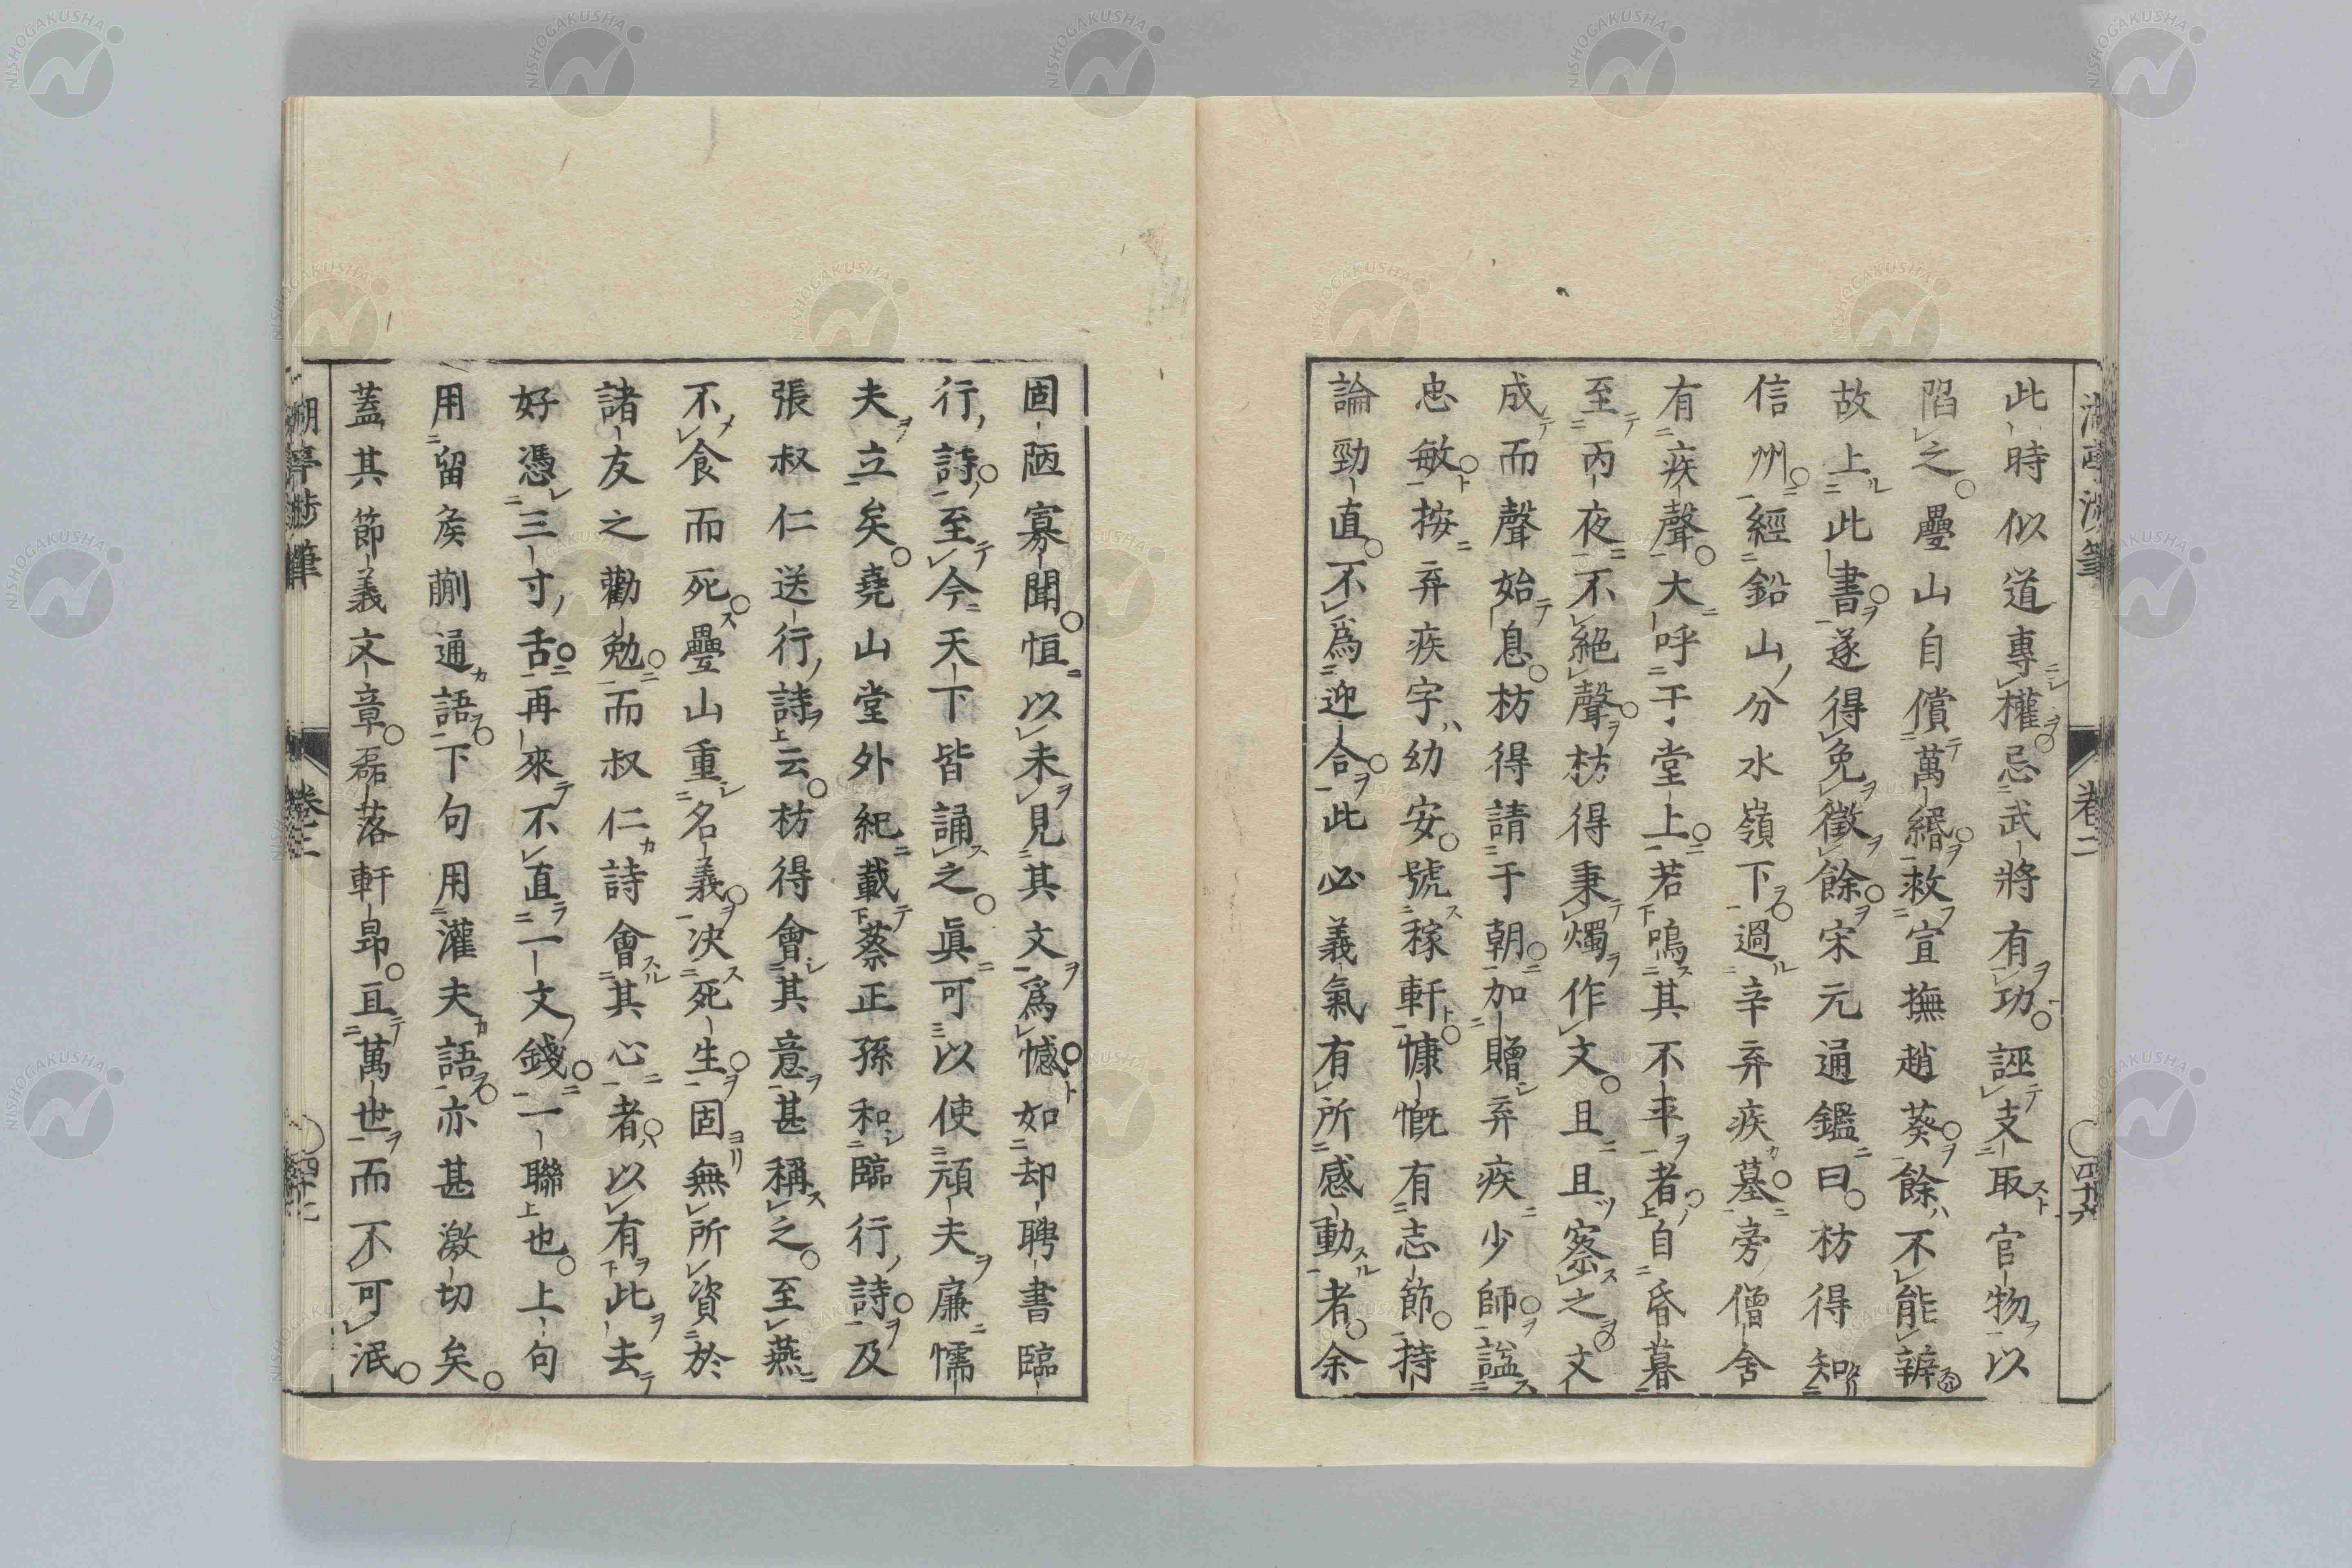 此時似道專權忌武將有功誣支取官物以
陷之疊山自償萬緡救宣撫趙葵餘不能辨
故上此書遂得免徵餘宋元通鑑曰枋得知
信州經鉛山分水嶺下過辛弃疾墓旁僧舍
有疾聲大呼于堂上若鳴其不平者自昏暮
至丙夜不絕聲枋得秉燭作文且且察之文
成而聲始息枋得請于朝加贈弃疾少師諡
忠敏按弃疾字幼安號稼軒慷慨有志節持
論勁直不爲迎合此必義氣有所感動者余
固陋寡聞恒以未見其文爲憾如却聘書臨
行詩至今天下皆誦之眞可以使頑夫廉懦
夫立矣堯山堂外紀載蔡正孫和臨行詩及
張叔仁送行詩云枋得會其意甚稱之至燕
不食而死疊山重名義决死生固無所資於
諸友之勸勉而叔仁詩會其心者以有此去
好憑三寸舌再來不直一文錢一聯也上句
用留矦蒯通語下句用灌夫語亦甚激切矣
蓋其節義文章磊落軒昂亘萬世而不可泯
卷二
四十六
卷二
NISHOGAKUSHA